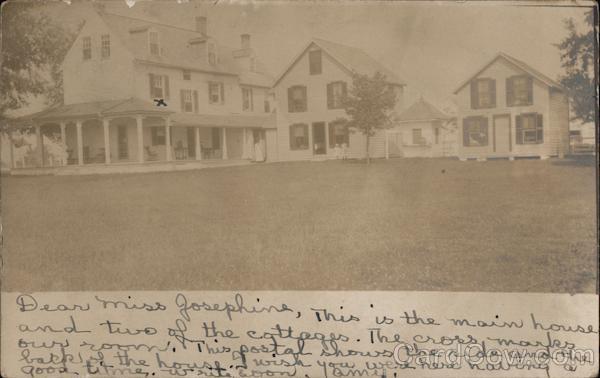 Dear Miss Josephine, This is the main house
and two of the cottages. The cross marks
our room. This postal shows
back of the house. I wish you were here having a
good time. Write soon.
CardCow.com